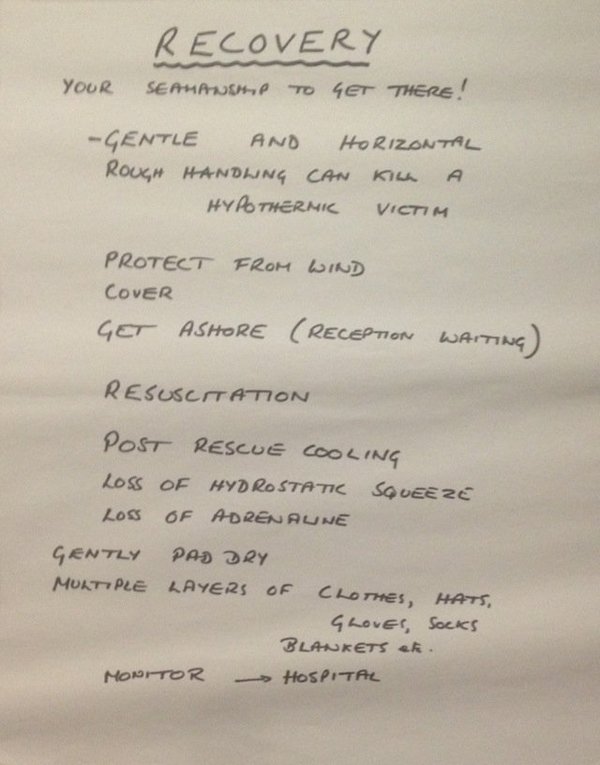 RECOVERY
YOUR SEAMANSHIP TO GET THERE!
-GENTLE AND HORIZONTAL
ROUGH HANDLING CAN KILL A
HYPOTHERMIC VICTIM
PROTECT FROM WIND
COVER
GET ASHORE (RECEPTION WAITING)
RESUSCITATION
POST RESCUE COOLING
LOSS OF HYDROSTATIC SQUEEZE
LOSS OF ADRENALINE
GENTLY PAD DRY
MULTIPLE LAYERS OF CLOTHES, HATS,
GLOVES, SOCKS
BLANKETS etc.
MONITOR → HOSPITAL